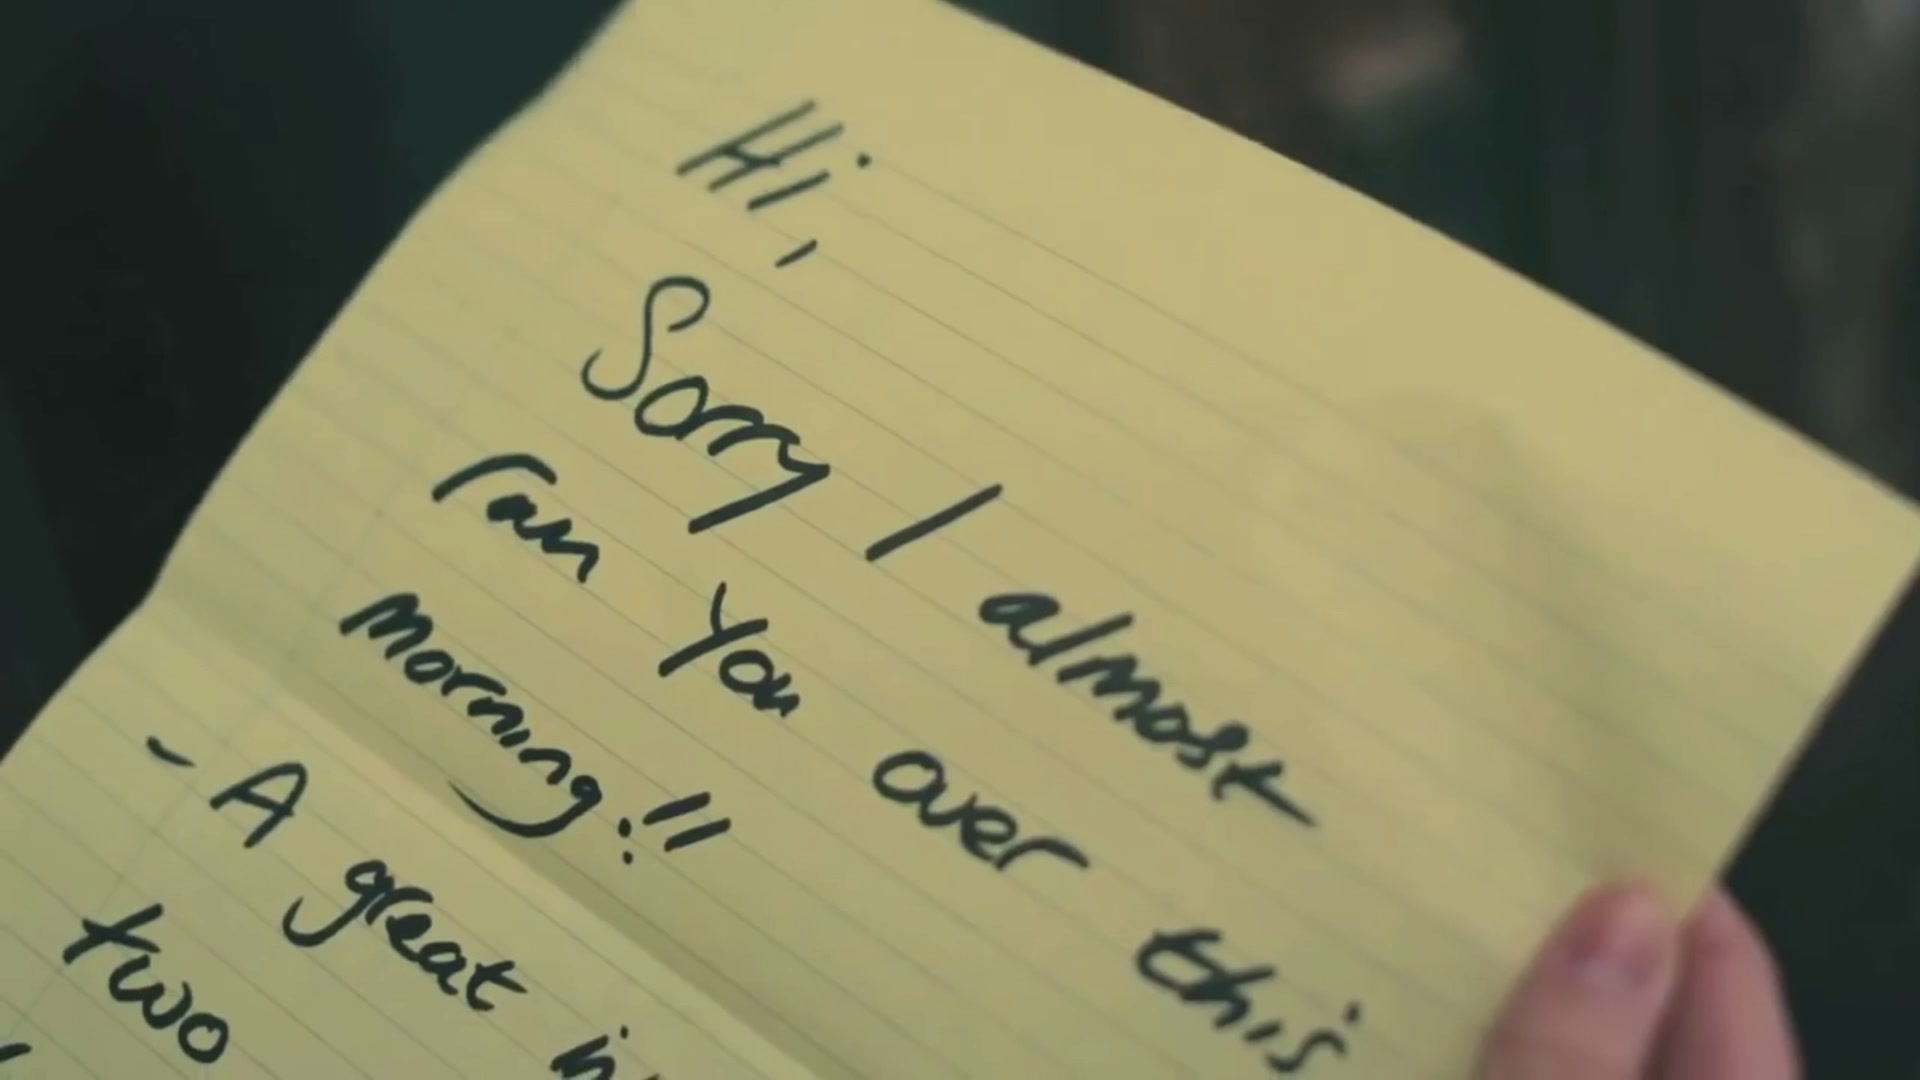 Hi,
Sorry I almost
ran you over this
morning!!
- A great
two